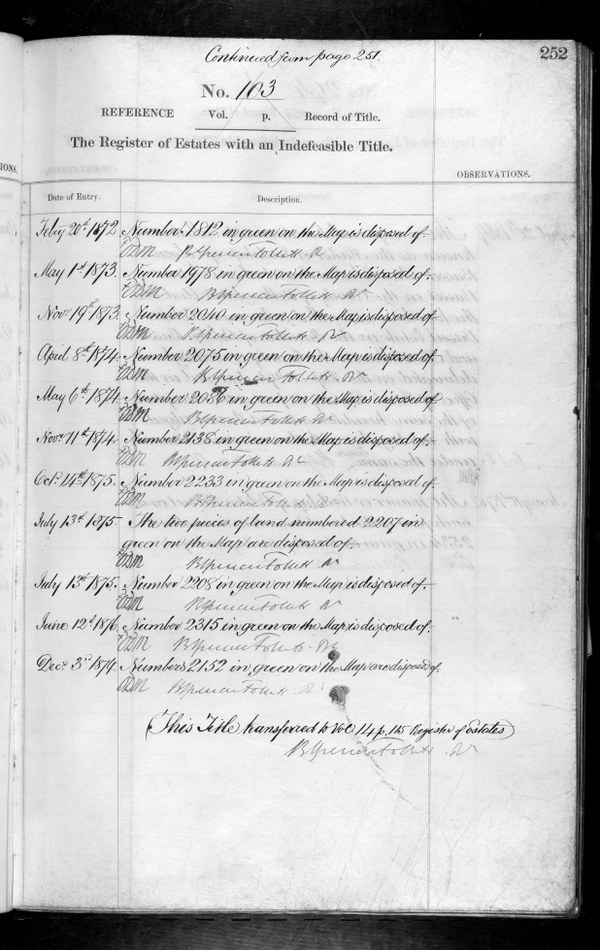 Continued from page 251.
252
No. 103
REFERENCE Vol. p. Record of Title.
The Register of Estates with an Indefeasible Title.
IONS.
OBSERVATIONS.
Date of Entry. Description.
Feby 20th 1872 Number 1812 in green on the Map is disposed of.
May 1st 1873. Number 1978 in green on the Map is disposed of.
Novr 19th 1873. Number 2040 in green on the Map is disposed of
April 8th 1874. Number 2075 in green on the Map is disposed of.
May 6th 1874 Number 2086 in green on the Map is disposed of
Novr 11th 1874. Number 2138 in green on the Map is disposed of.
Octr 14th 1875. Number 2233 in green on the Map is disposed of
July 13th 1875. The two pieces of land numbered 2207 in
green on the Map are disposed of.
July 13th 1875. Number 2208 in green on the Map is disposed of.
June 12th 1876. Number 2315 in green on the Map is disposed of.
Decr 3rd 1879. Numbers 2152 in green on the Map are disposed of.
(This Title transferred to Vol 14 p. 115 Register of Estates)